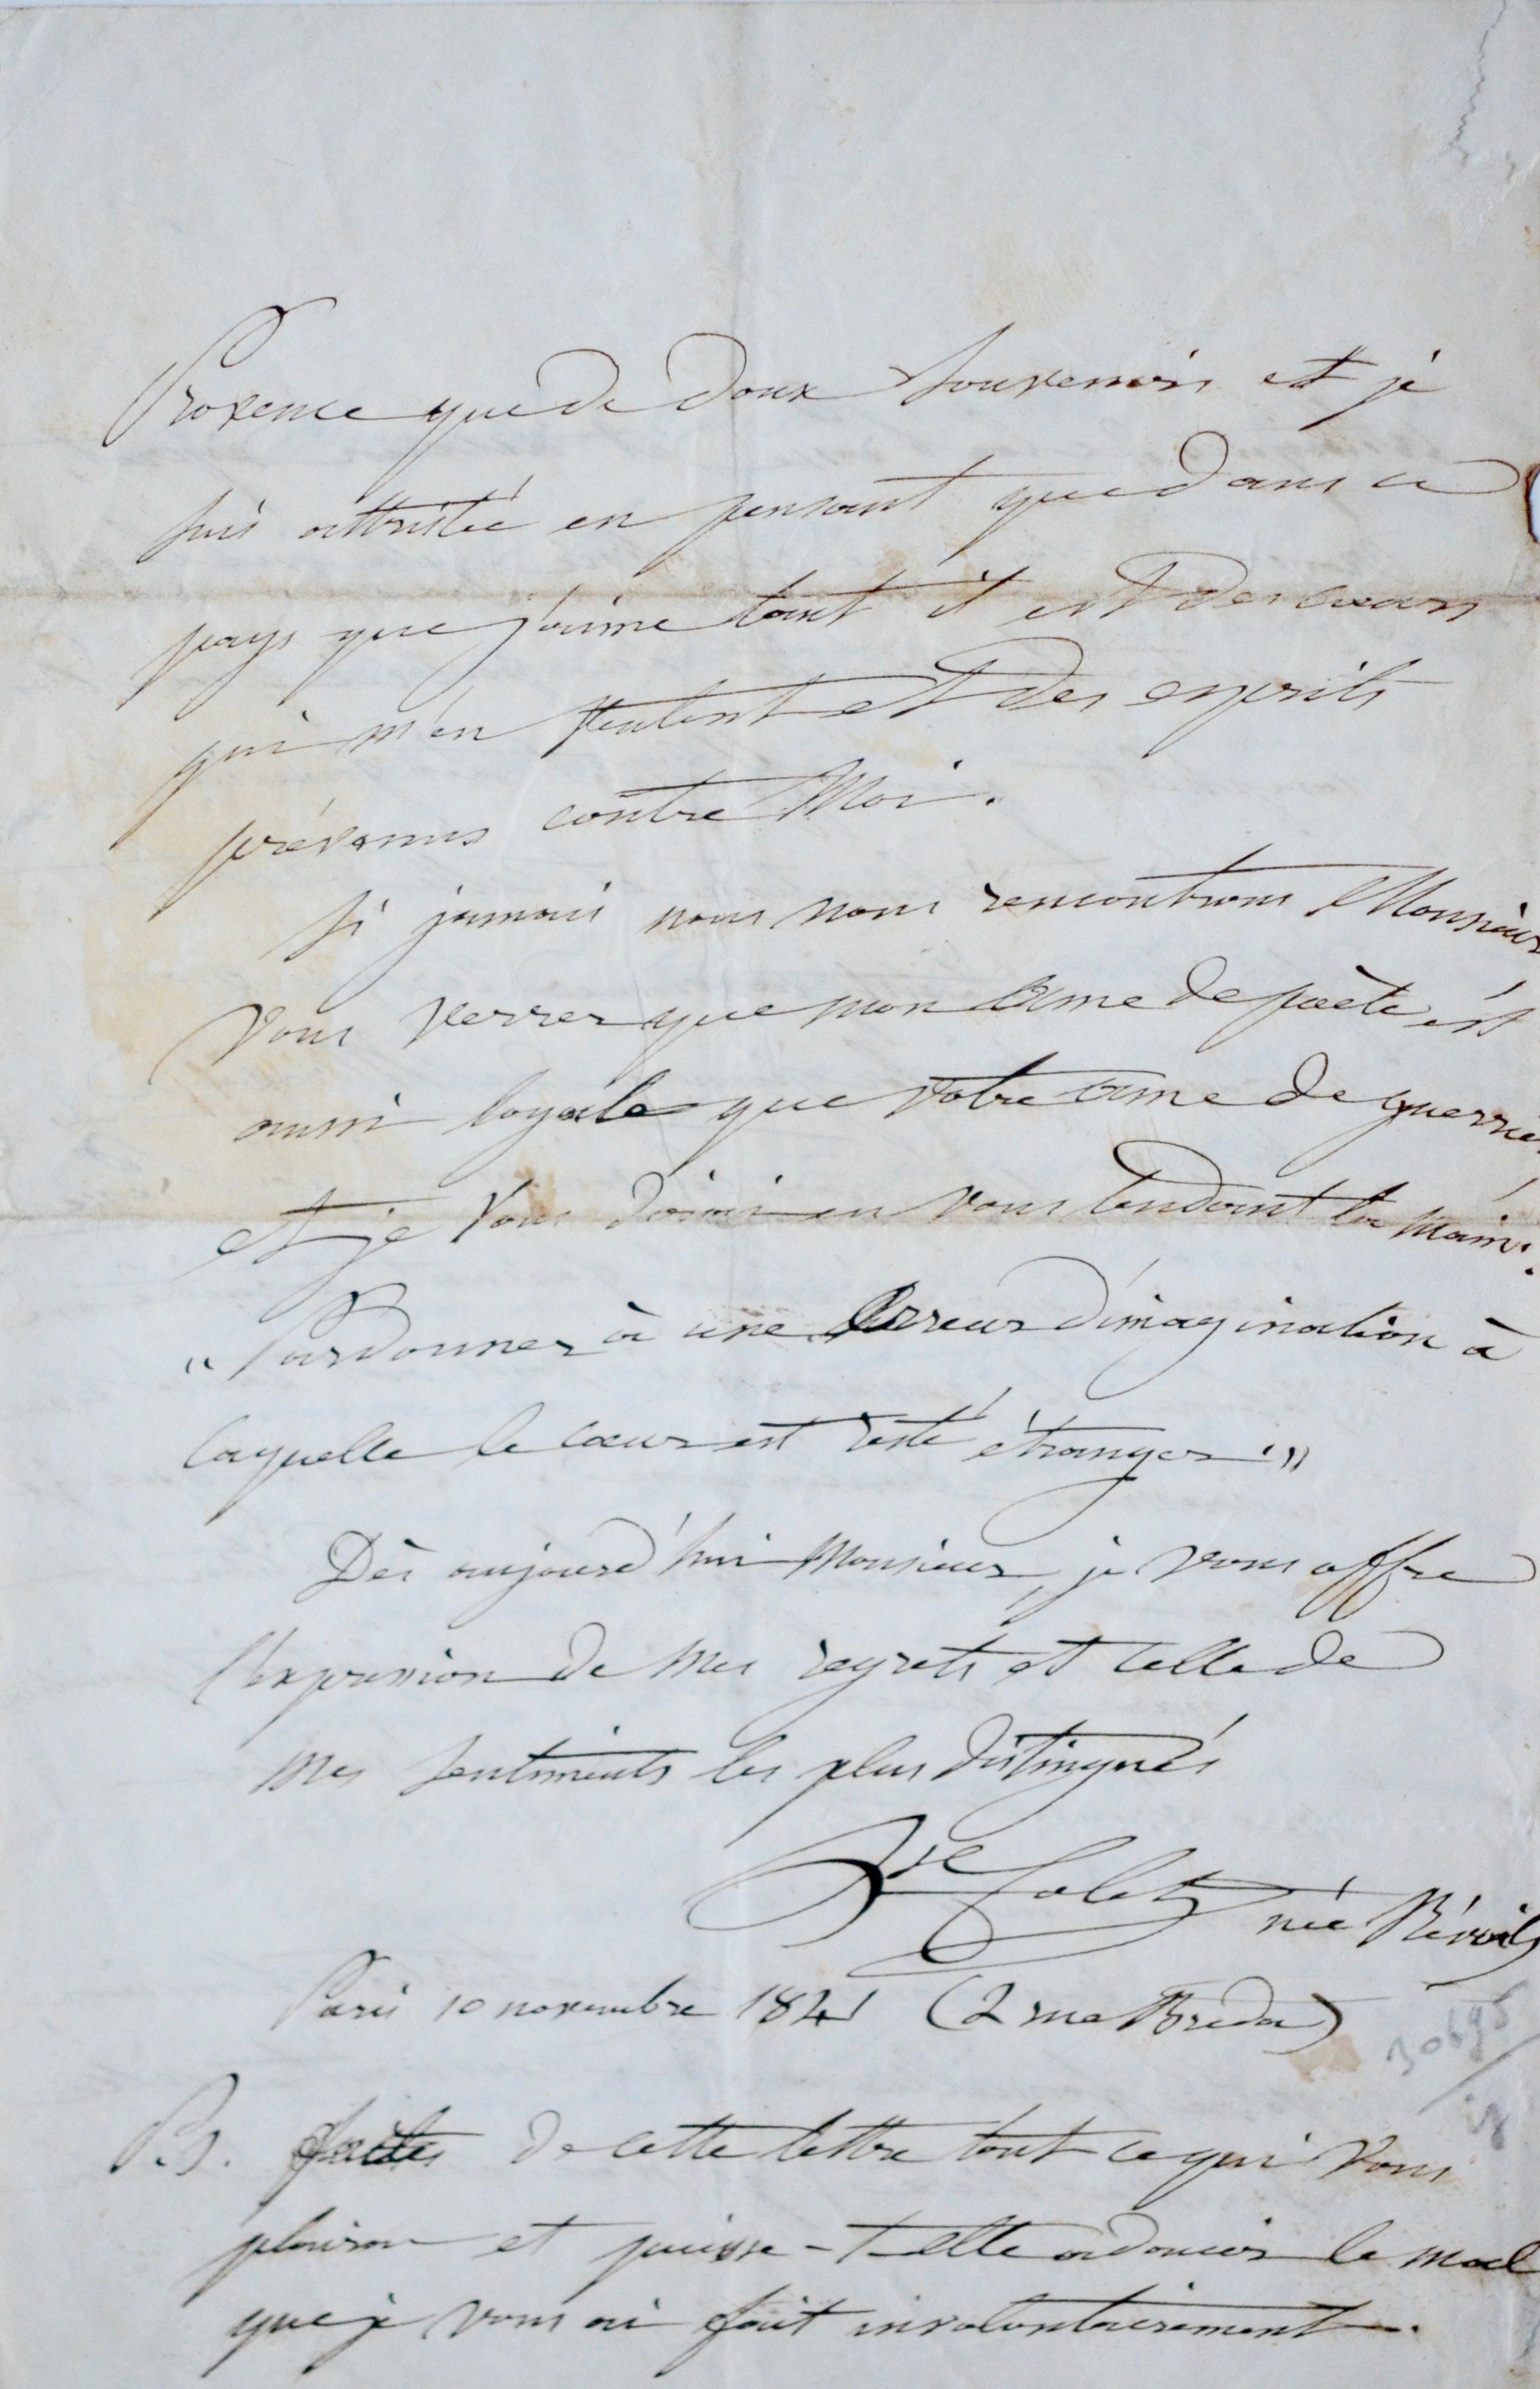 Provence que de doux souvenirs et je
suis attristée en pensant que dans ce
pays que j'aime tant il est des cœurs
qui m'en veulent et des esprits
prévenus contre moi.
Si jamais nous nous rencontrons Monsieur
vous verrez que mon âme de poète est
aussi loyale que votre âme de guerrier
et je vous dirai en vous tendant la main:
"Pardonnez à une erreur d'imagination à
laquelle le cœur est resté étranger."
Dès aujourd'hui Monsieur, je vous offre
l'expression de mes regrets et celle de
mes sentiments les plus distingués
Colet née Révoil
Paris 10 novembre 1841 (2 rue Breda)
P.S. faites de cette lettre tout ce qui vous
plaira et puisse-t-elle adoucir le mal
que je vous ai fait involontairement.